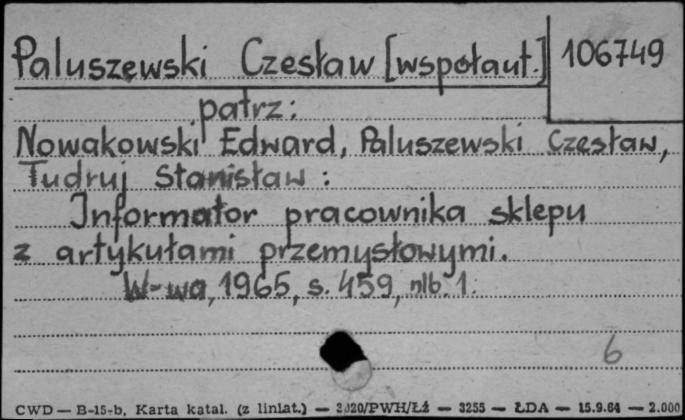 Paluszewski Czesław [współaut.] 106749
patrz:
Nowakowski Edward, Paluszewski Czesław,
Tudruj Stanisław:
Informator pracownika sklepu
z artykułami przemysłowymi.
W-wa, 1965, s. 459, nlb. 1.
6
CWD — B-15-b, Karta katal. (z liniat.) — 2020/PWH/Łż — 3255 — ŁDA — 15.9.64 — 2.000